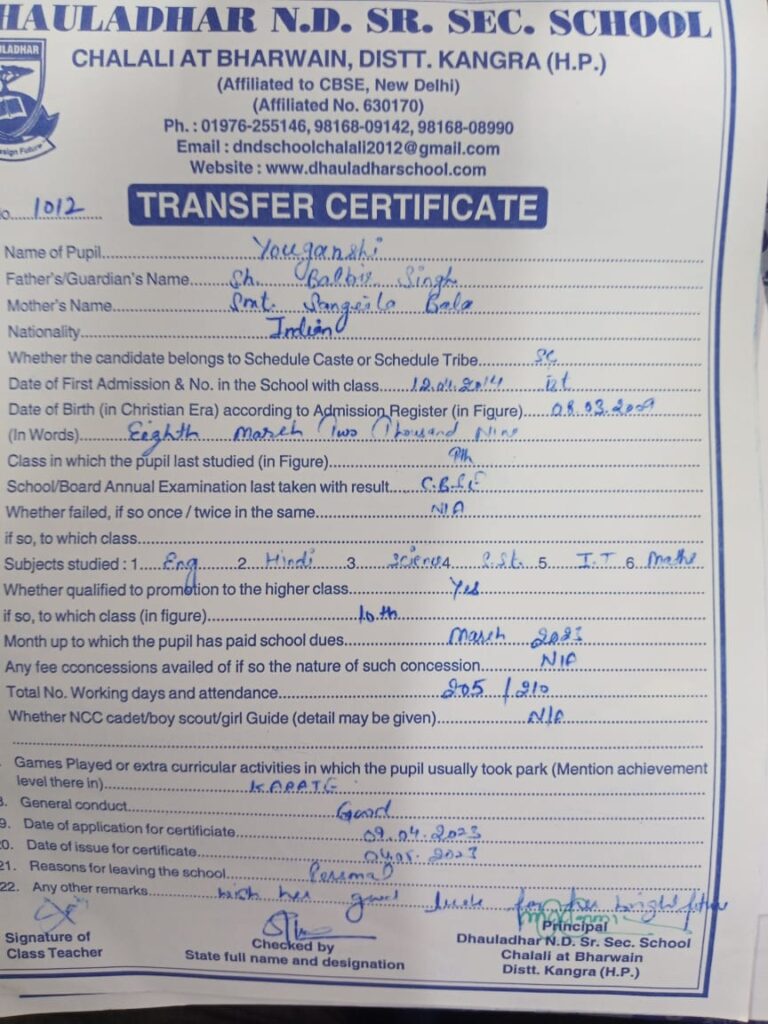 HAULADHAR N.D. SR. SEC. SCHOOL
ULADHAR
CHALALI AT BHARWAIN, DISTT. KANGRA (H.P.)
(Affiliated to CBSE, New Delhi)
(Affiliated No. 630170)
sign Future
Ph. : 01976-255146, 98168-09142, 98168-08990
Email : dndschoolchalali2012@gmail.com
Website : www.dhauladharschool.com
o. 1012 TRANSFER CERTIFICATE
Name of Pupil Youganshi
Father's/Guardian's Name Sh. Balbir Singh
Mother's Name Smt. Sangeeta Bala
Nationality Indian
Whether the candidate belongs to Schedule Caste or Schedule Tribe SC
Date of First Admission & No. in the School with class 12.04.2014 Ist
Date of Birth (in Christian Era) according to Admission Register (in Figure) 08.03.2009
(In Words) Eighth March Two Thousand Nine
Class in which the pupil last studied (in Figure) 9th
School/Board Annual Examination last taken with result C.B.S.E
Whether failed, if so once / twice in the same N/A
if so, to which class
Subjects studied : 1 Eng 2 Hindi 3 Science 4 S.St. 5 I.T 6 Maths
Whether qualified to promotion to the higher class Yes
if so, to which class (in figure) 10th
Month up to which the pupil has paid school dues March 2023
Any fee cconcessions availed of if so the nature of such concession N/A
Total No. Working days and attendance 205 / 210
Whether NCC cadet/boy scout/girl Guide (detail may be given) N/A
Games Played or extra curricular activities in which the pupil usually took park (Mention achievement
level there in) KARATE
8. General conduct Good
9. Date of application for certificiate 09.04.2023
20. Date of issue for certificate 2023
21. Reasons for leaving the school Personal
22. Any other remarks wish her good luck for her bright future
Signature of
Class Teacher
Checked by
State full name and designation
Principal
Dhauladhar N.D. Sr. Sec. School
Chalali at Bharwain
Distt. Kangra (H.P.)